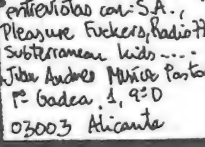 entrevistas con: S.A.,
Pleasure Fuckers, Radio 77
Subterranean Kids ....
Juan Andres Muñoz Pastor
Pº Gadea, 1, 9º D
03003 Alicante